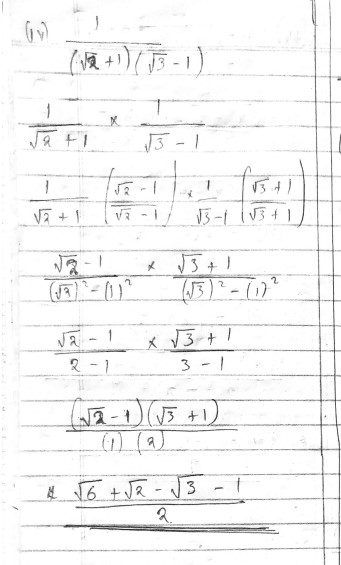 (iv) 1 / (√2 + 1)(√3 - 1)
1 / √2 + 1 × 1 / √3 - 1
1 / √2 + 1 (√2 - 1 / √2 - 1) × 1 / √3 - 1 (√3 + 1 / √3 + 1)
√2 - 1 / (√2)² - (1)² × √3 + 1 / (√3)² - (1)²
√2 - 1 / 2 - 1 × √3 + 1 / 3 - 1
(√2 - 1)(√3 + 1) / (1) (2)
√6 + √2 - √3 - 1 / 2